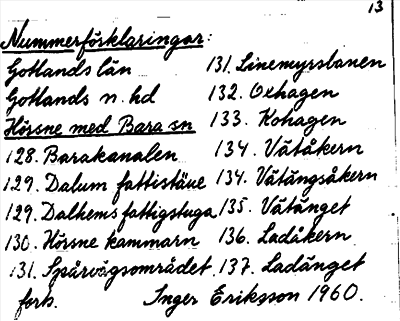 13
Nummerförklaringar:
Gotlands län
Gotlands n. hd
Hörsne med Bara sn
128. Barakanalen
129. Dalum fattistäue
129. Dalhems fattigstuga
130. Hörsne kammarn
131. Spårvägsområdet
forts.
131. Linemyrsbanen
132. Oxhagen
133. Kohagen
134. Våtåkern
134. Våtängsåkern
135. Våtänget
136. Ladåkern
137. Ladänget
Inger Eriksson 1960.